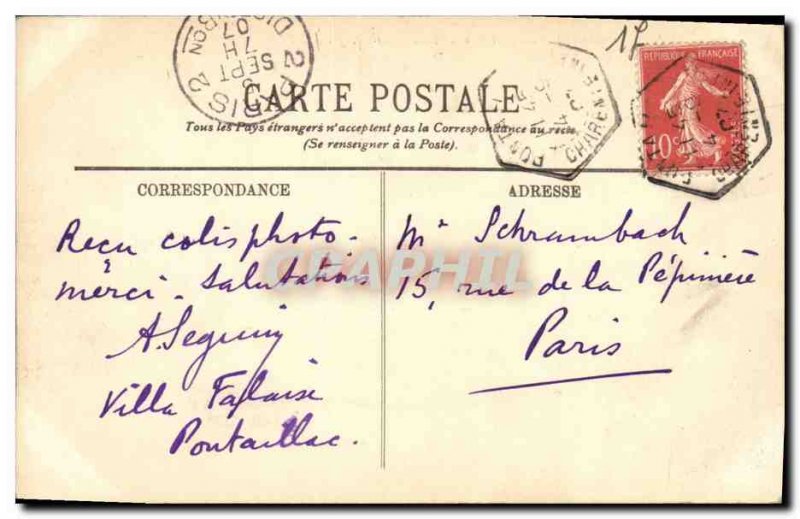 17
PARIS 2
DISTRIBON
7H
2 SEPT
07
RÉPUBLIQUE FRANÇAISE
10c
CARTE POSTALE
Tous les Pays étrangers n'acceptent pas la Correspondance au recto
(Se renseigner à la Poste).
CORRESPONDANCE
ADRESSE
Reçu colis photo -
merci - Salutations
A. Seguin
Villa Falaise
Pontaillac.
Mr Schrambach
15, rue de la Pépinière
Paris
CPAPHIL